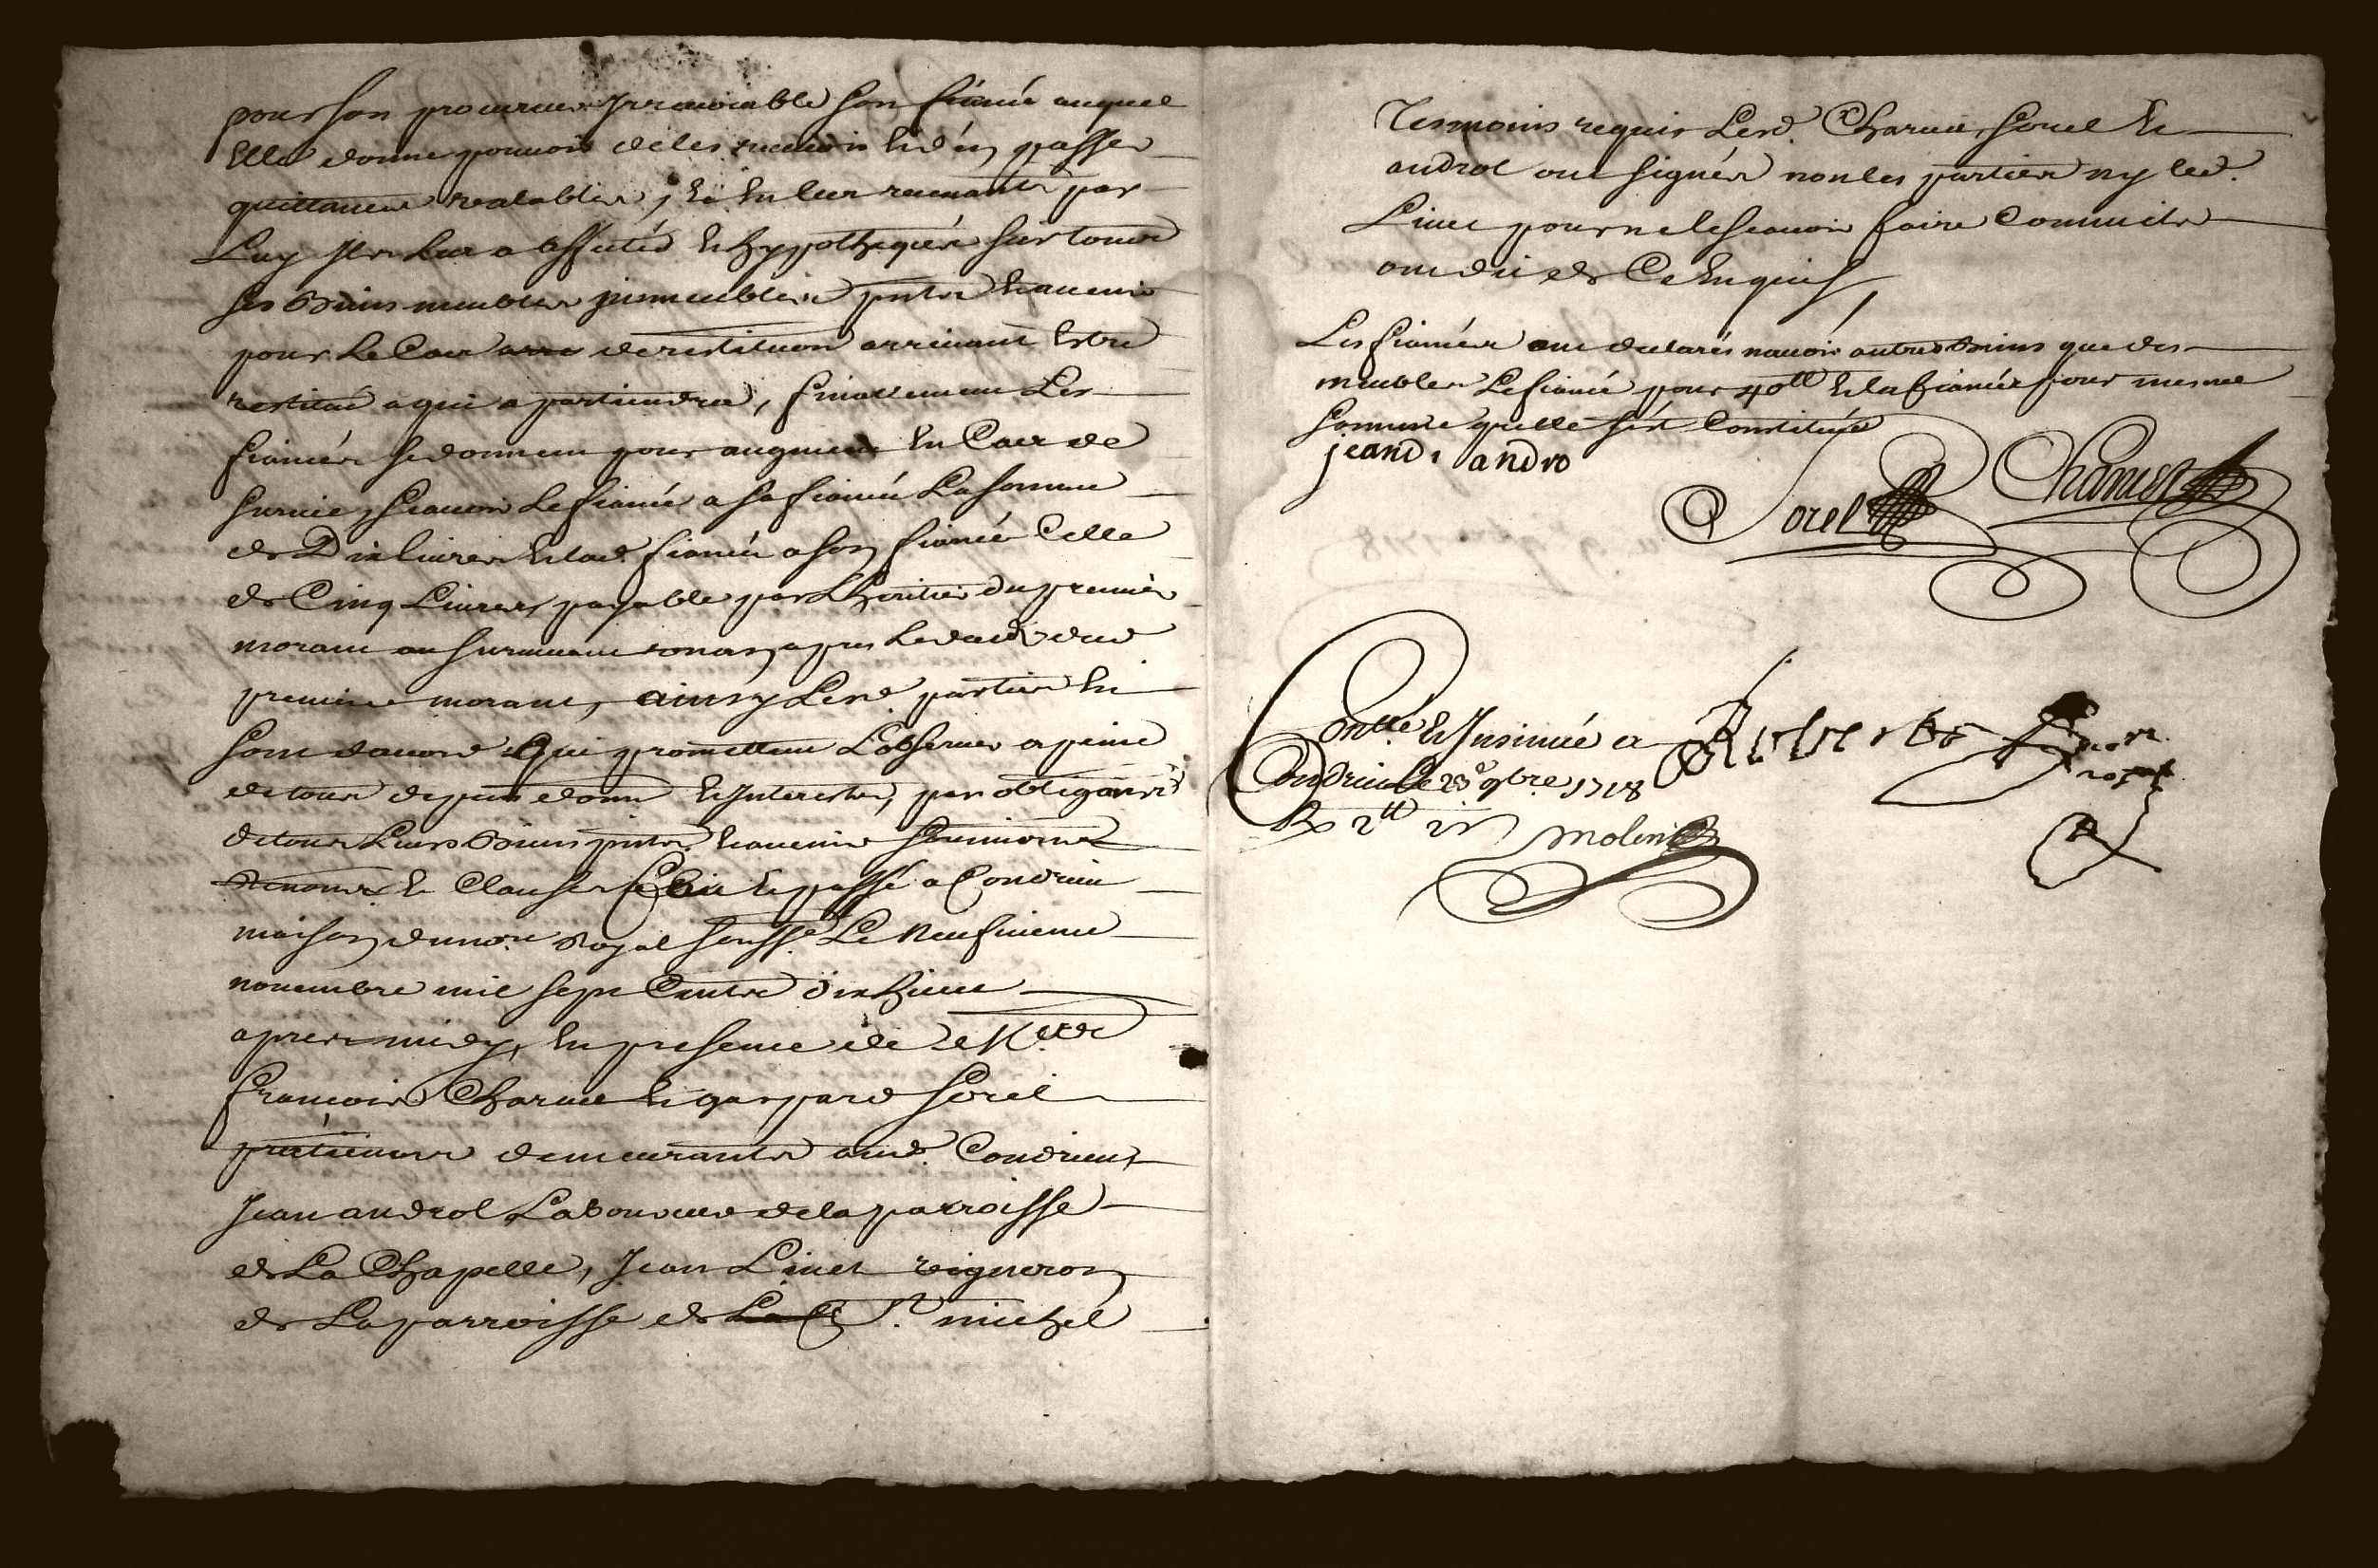 pour son procureur Irrevocable son fiancé auquel
Elle donne pouvoir de les recevoir Et d'en passer
quittances valables, Et En leur recevant par
Luy Il les leur a affectés Et hypothequés sur tous
ses biens meubles immeubles pntz Et avenir
pour Le Cas de restitution arrivant Estre
restitué a qui apartiendra, finalement Les
fiancés se donnent pour augment En Cas de
survie, scavoir Le fiancé a sa fiancée La somme
de Dix livres Et lad. fiancée a son fiancé Celle
de Cinq Livres, payable par L'heritier du premier
morant au survivant un an apres Le deced dud
premier morant, ainsy Lesd. parties En
sont d'acord Qui promettent L'observer a peine
de tous depens domm Et Interestz, par obligaon
de tous Leurs biens pntz Et avenir soumissions
Renonces Et Clauses fait Et passé a Condrieu
maison du nore Royal soussé. Le neufvieme
novembre mil sept Centz dix huict
apres midy, En presence de Mtre
françois Charvet Et gaspard sorel
praticiens demeurantz aud. Condrieu,
Jean androl Laboureur de la parroisse
de La Chapelle, Jean Linet vigneron
de La parroisse de St. michel
Tesmoins requis Lesd. Charvet, sorel Et
androl ont signés non les parties ny led.
Linet pour ne le scavoir faire
ont dit de Ce Enquis
Les fiancés ont declarés n'avoir autres biens que des
meubles Le fiancé pour 40ll Et la fiancée pour mesme
somme qu'elle s'est Constituée
jean androl
Sorel Charvet
Contllé Et Insinué a
Condrieu Le 23e 9bre 1718
R 2ll
molin
nore
royal